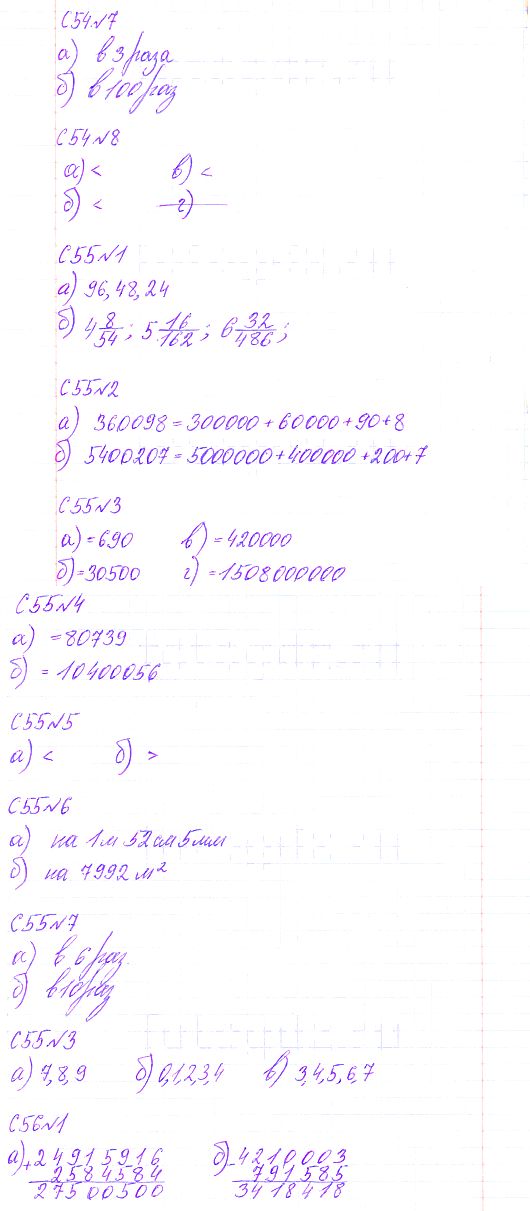 С54№7
а) в 3 раза
б) в 100 раз
С54№8
а) < в) <
б) < г)
С55№1
а) 96, 48, 24
б) 4 8/54; 5 16/162; 6 32/486;
С55№2
а) 360098 = 300000 + 60000 + 90 + 8
б) 5400207 = 5000000 + 400000 + 200 + 7
С55№3
а) = 690 в) = 420000
б) = 30500 г) = 1508000000
С55№4
а) = 80739
б) = 10400056
С55№5
а) < б) >
С55№6
а) на 1м 52см 5мм
б) на 7992 м²
С55№7
а) в 6 раз
б) в 10 раз
С55№3
а) 7,8,9 б) 0,1,2,3,4 в) 3,4,5,6,7
С56№1
а) + 24915916 б) - 4210003
2584584 791585
27500500 3418418